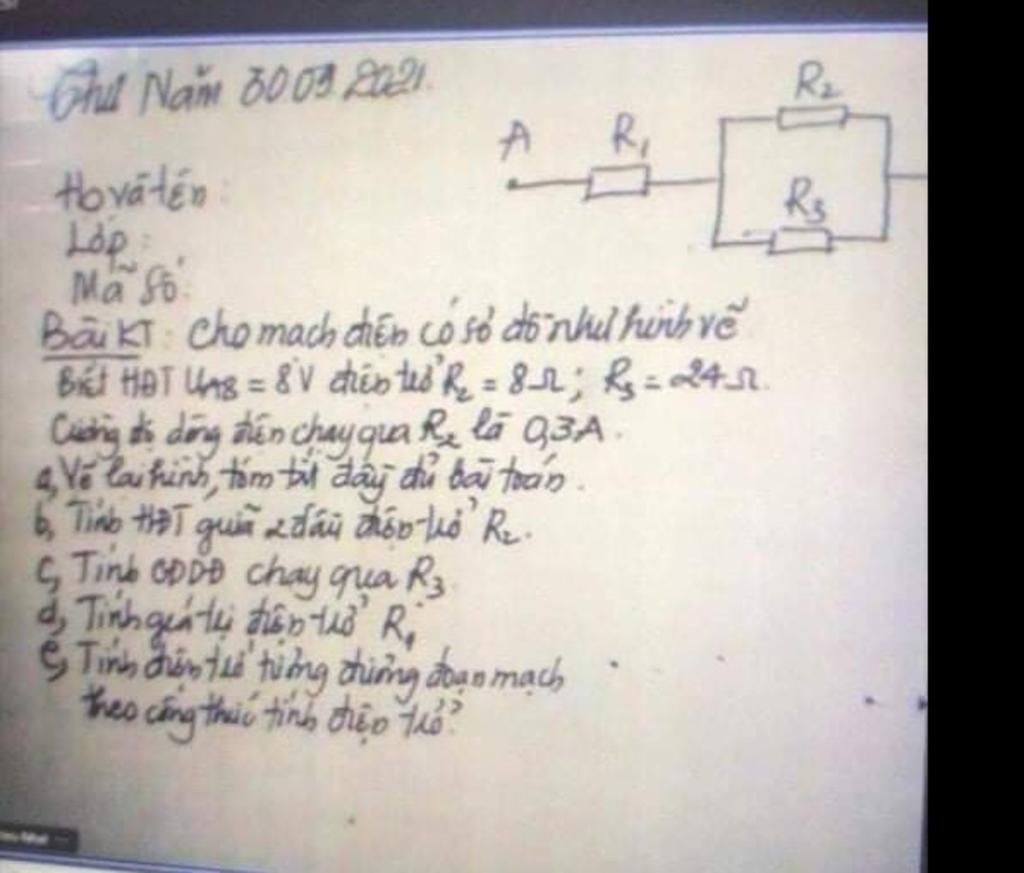 Thứ Năm 30 09 2021.
A R₁ R₂
R₃
Họ và tên:
Lớp:
Mã số:
Bài KT: Cho mạch điện có sơ đồ như hình vẽ
Biết HĐT UAB = 8V điện trở R₂ = 8Ω; R₃ = 24Ω.
Cường độ dòng điện chạy qua R₂ là 0,3A.
a, Vẽ lại hình, tóm tắt đầy đủ bài toán.
b, Tính HĐT giữa 2 đầu điện trở R₂.
c, Tính CĐDĐ chạy qua R₃
d, Tính giá trị điện trở R₁
e, Tính điện trở tương đương đoạn mạch
theo công thức tính điện trở?